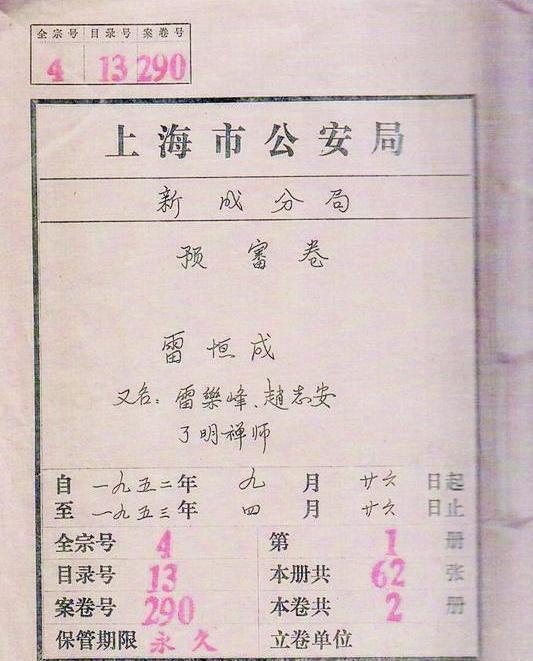 全宗号 目录号 案卷号
4 13 290
上海市公安局
新成分局
预審卷
雷恒成
又名：雷樂峰、趙志安
了明禅师
自 一九五二年 九 月 廿六 日起
至 一九五三年 四 月 廿六 日止
全宗号 4 第 1 册
目录号 13 本册共 62 张
案卷号 290 本卷共 2 册
保管期限 永久 立卷单位